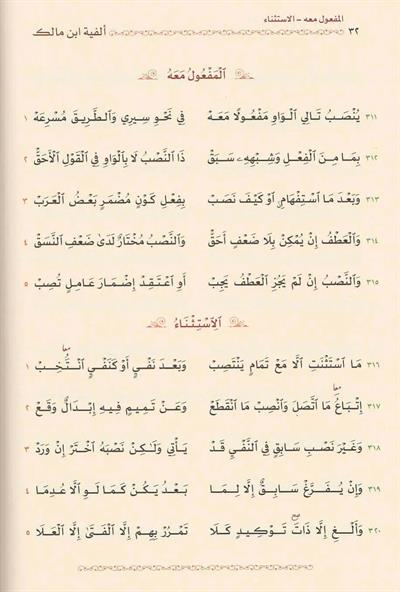 المفعول معه – الاستثناء
٣٢ ألفية ابن مالك
ٱلْمَفْعُولُ مَعَهُ
٣١١ يُنْصَبُ تَالِي ٱلْوَاوِ مَفْعُولًا مَعَهْ فِي نَحْوِ سِيرِي وَٱلطَّرِيقَ مُسْرِعَهْ ١
٣١٢ بِمَا مِنَ ٱلْفِعْلِ وَشِبْهِهِۦ سَبَقْ ذَا ٱلنَّصْبُ لَا بِٱلْوَاوِ فِي ٱلْقَوْلِ ٱلْأَحَقّْ ٢
٣١٣ وَبَعْدَ مَا ٱسْتِفْهَامٍ ٱوْ كَيْفَ نَصَبْ بِفِعْلِ كَوْنٍ مُضْمَرٍ بَعْضُ ٱلْعَرَبْ ٣
٣١٤ وَٱلْعَطْفُ إِنْ يُمْكِنْ بِلَا ضَعْفٍ أَحَقّْ وَٱلنَّصْبُ مُخْتَارٌ لَدَىٰ ضَعْفِ ٱلنَّسَقْ ٤
٣١٥ وَٱلنَّصْبُ إِنْ لَمْ يَجُزِ ٱلْعَطْفُ يَجِبْ أَوِ ٱعْتَقِدْ إِضْمَارَ عَامِلٍ تُصِبْ ٥
ٱلِٱسْتِثْنَاءُ
٣١٦ مَا ٱسْتَثْنَتِ ٱلَّا مَعْ تَمَامٍ يَنْتَصِبْ وَبَعْدَ نَفْيٍ أَوْ كَنَفْيٍ ٱنْتُخِبْ ١
٣١٧ إِتْبَاعُ مَا ٱتَّصَلَ وَٱنْصِبْ مَا ٱنْقَطَعْ وَعَنْ تَمِيمٍ فِيهِ إِبْدَالٌ وَقَعْ ٢
٣١٨ وَغَيْرُ نَصْبِ سَابِقٍ فِي ٱلنَّفْيِ قَدْ يَأْتِي وَلَٰكِنْ نَصْبَهُ ٱخْتَرْ إِنْ وَرَدْ ٣
٣١٩ وَإِنْ يُفَرَّغْ سَابِقٌ إِلَّا لِمَا بَعْدُ يَكُنْ كَمَا لَوِ ٱلَّا عُدِمَا ٤
٣٢٠ وَأَلْغِ إِلَّا ذَاتَ تَوْكِيدٍ كَلَا تَمْرُرْ بِهِمْ إِلَّا ٱلْفَتَىٰ إِلَّا ٱلْعَلَا ٥